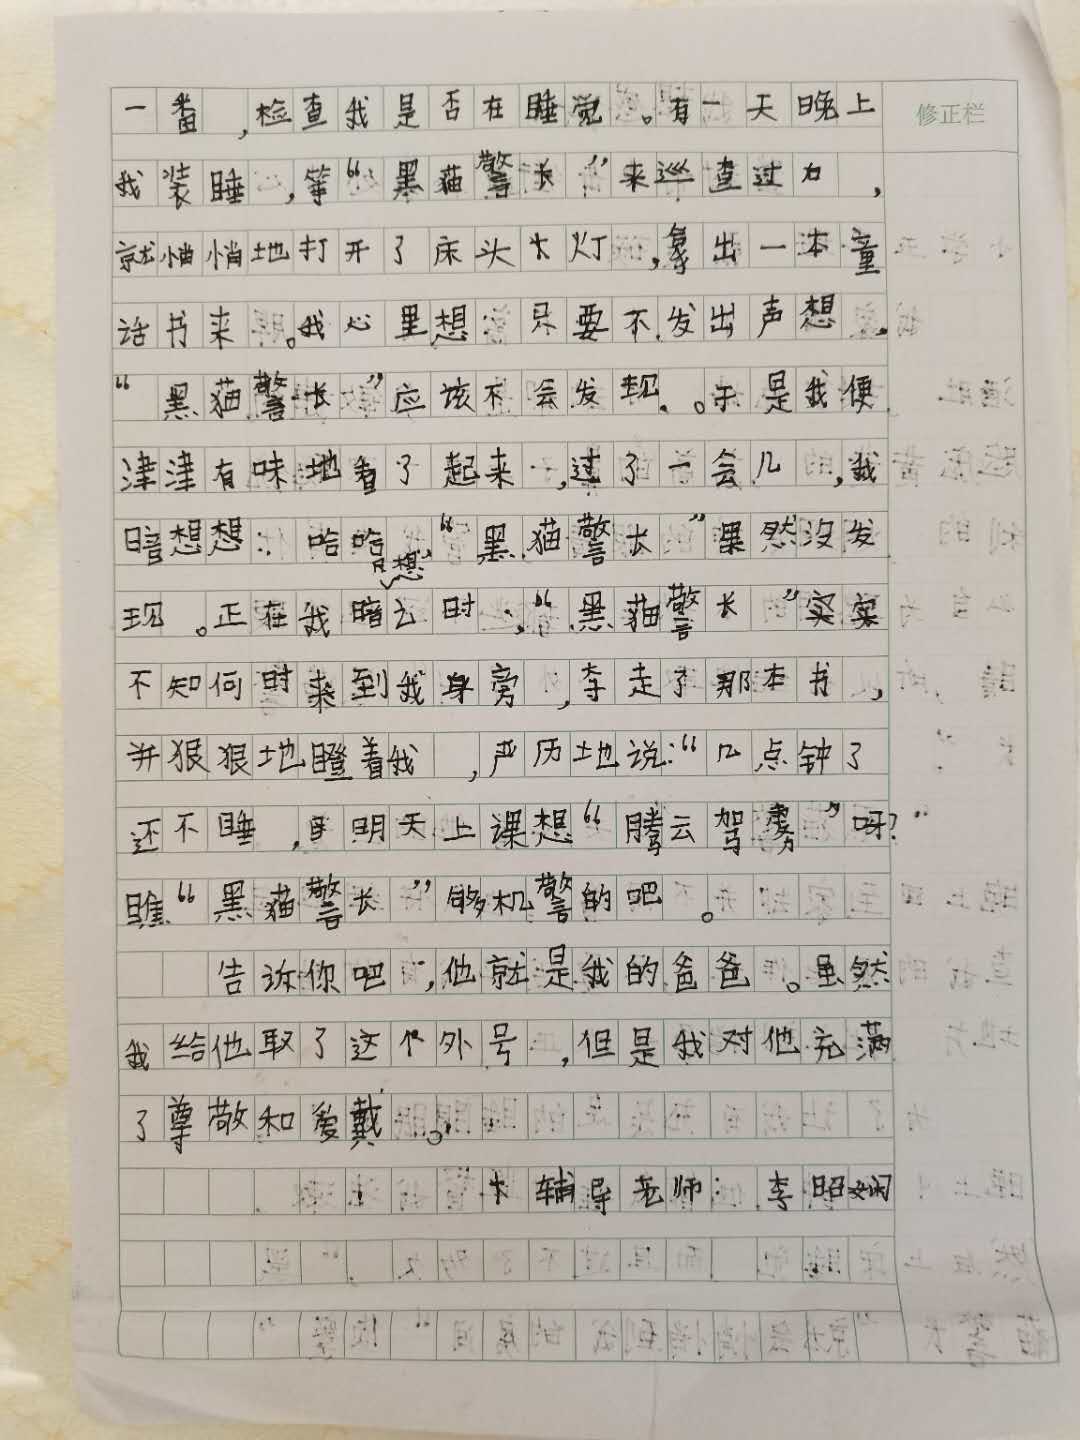 修正栏
一番,检查我是否在睡觉。有一天晚上
我装睡,等“黑猫警长”来巡查过
就悄悄地打开了床头灯,拿出一本童
话书来。我心里想:只要不发出声想,
“黑猫警长”应该不会发现。于是我便
津津有味地看了起来,过了一会儿,我
暗想想:哈哈,“黑猫警长”果然没发
现。正在我暗只想时,“黑猫警长”实实
不知何时来到我身旁,拿走了那本书,
并狠狠地瞪着我,严历地说:“几点钟了
还不睡,明天上课想“腾云驾雾”呀?”
瞧“黑猫警长”够机警的吧。
告诉你吧,他就是我的爸爸。虽然
我给他取了这个外号,但是我对他充满
了尊敬和爱戴。
辅导老师:李昭娴